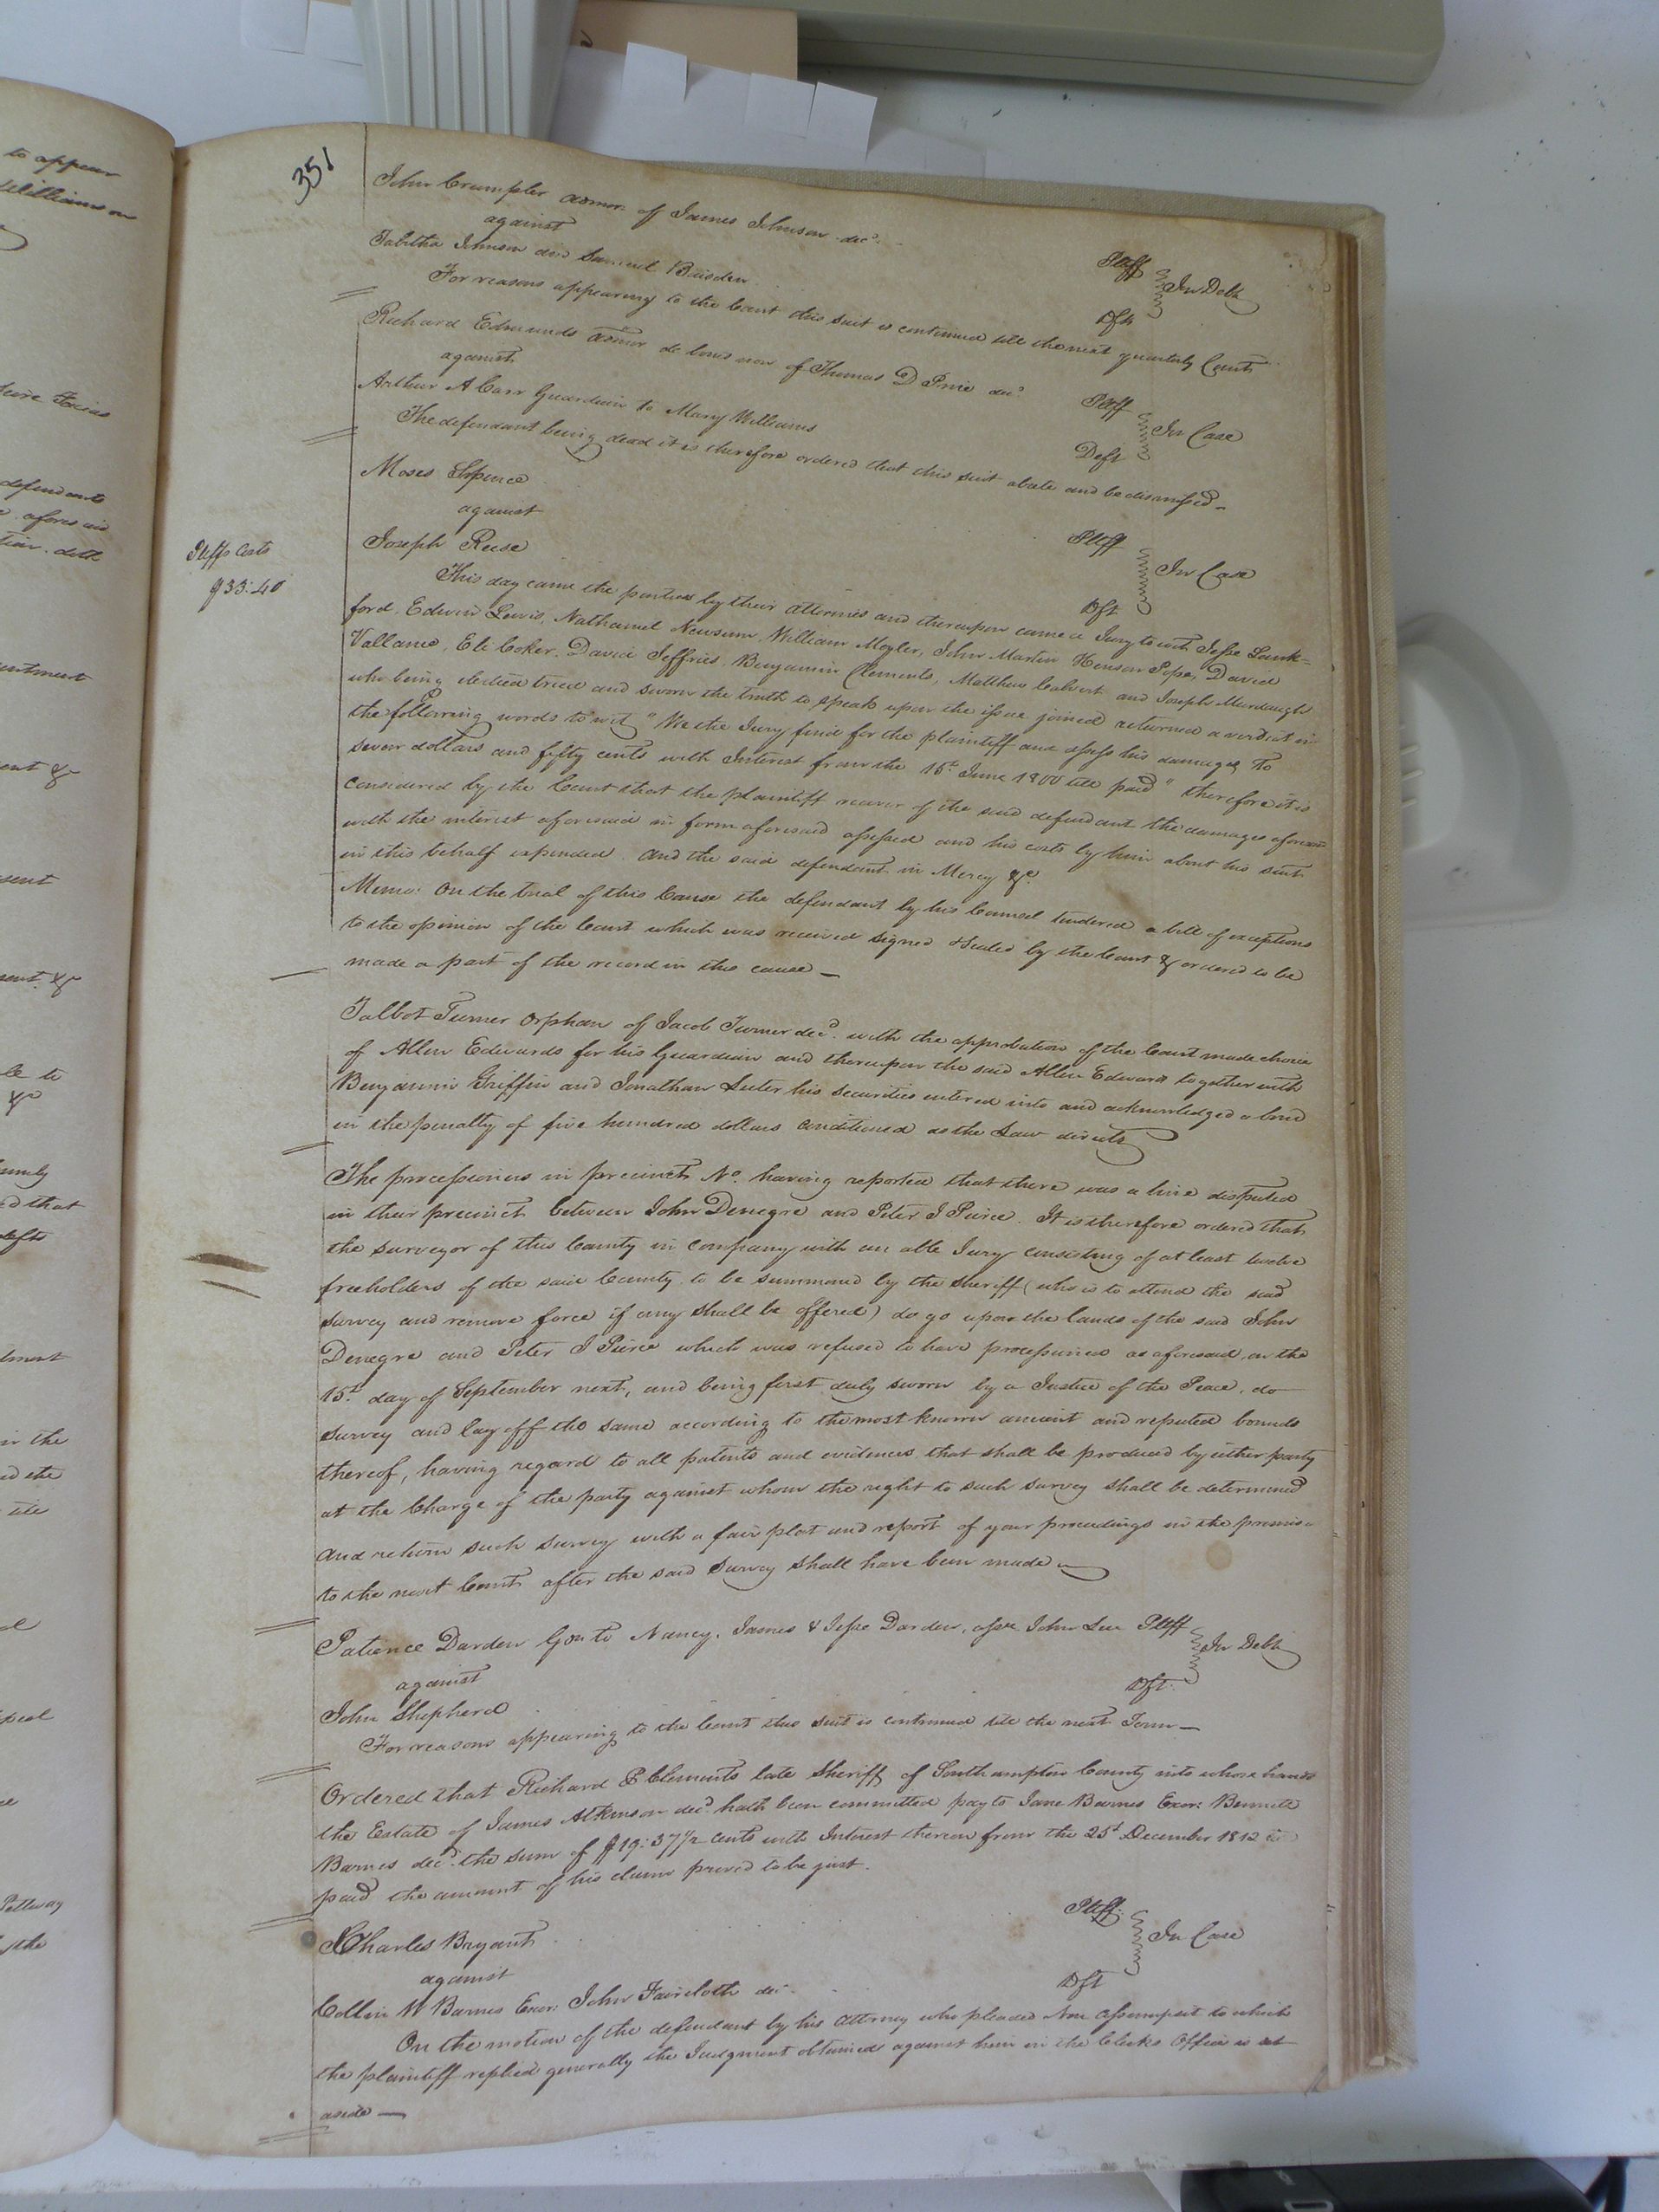 351
John Crumpler admor of James Johnson dec.d Pltff
against In Debt
Tabitha Johnson and Samuel Baisden Dfts
For reasons appearing to the Court this suit is continued till the next quarterly Court
Richard Edmunds admor de bonis non of Thomas D Price dec.d Pltff
against In Case
Arthur A Carr Guardian to Mary Williams Deft
The defendant being dead it is therefore ordered that this suit abate and be dismissed
Moses Spence Pltff
against In Case
Joseph Reese Dft
Pltffs Costs
$33:40
This day came the parties by their attornies and thereupon came a Jury to wit, Jesse Lank=
ford, Edwin Lewis, Nathaniel Newsum, William Moyler, John Martin Henson Pope, David
Vallance, Eli Coker, David Jeffries, Benjamin Clements, Matthew Calvert and Joseph Murdaugh
who being elected tried and sworn the truth to speak upon the issue joined returned a verdict in
the following words to wit "We the Jury find for the plaintiff and assess his damages to
seven dollars and fifty cents with Interest from the 15th June 1800 till paid" therefore it is
considered by the Court that the plaintiff recover of the said defendant the damages aforesaid
with the interest aforesaid in form aforesaid assessed and his costs by him about his suit
in this behalf expended. And the said defendant in Mercy &c.
Memo: On the trial of this Cause the defendant by his Counsel tendered a bill of exceptions
to the opinion of the Court which was received signed & sealed by the Court & ordered to be
made a part of the record in this cause
Talbot Turner Orphan of Jacob Turner dec.d with the approbation of the Court made choice
of Allen Edwards for his Guardian and thereupon the said Allen Edwards together with
Benjamin Griffin and Jonathan Luter his securities entered into and acknowledged a bond
in the penalty of five hundred dollars conditioned as the Law directs
The processioners in precinct No. having reported that there was a line disputed
in their precinct between John Denegre and Peter J Pierce. It is therefore ordered that
the surveyor of this County in company with an able Jury consisting of at least twelve
freeholders of the said County, to be summoned by the Sheriff (who is to attend the said
survey and remove force if any shall be offered) do go upon the lands of the said John
Denegre and Peter J Pierce which was refused to have processioned as aforesaid, on the
15th day of September next, and being first duly sworn by a Justice of the Peace, do
survey and lay off the same according to the most known ancient and reputed bounds
thereof, having regard to all patents and evidences that shall be produced by either party
at the Charge of the party against whom the right to such survey shall be determined
And return such survey with a fair plat and report of your proceedings in the premises
to the next Court after the said Survey shall have been made
Patience Darden Gdn to Nancy, James & Jesse Darden, assee John Lee Pltff
against In Debt
John Shepherd Dft.
For reasons appearing to the Court this suit is continued till the next Term
Ordered that Richard P Clements late Sheriff of Southampton County into whose hands
the Estate of James Atkinson dec.d hath been committed pay to Jane Barnes Exor: Bennett
Barnes dec.d the sum of $19:37 1/2 cents with Interest thereon from the 25th December 1812 till
paid the amount of his claim proved to be just.
Charles Bryant Pltff.
against In Case
Collin W Barnes Exor: John Faircloth dec. Dft
On the motion of the defendant by his Attorney who pleaded Non Assumpsit to which
the plaintiff replied generally the Judgment obtained against him in the Clerks Office is set
aside
to appear
Williamson
defendants
aforesaid
sent
&c
le to
&c
d that
defts
in the
Pettway
the